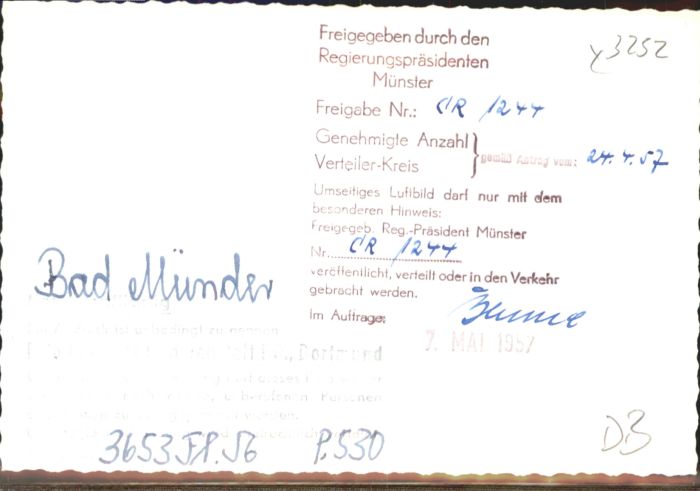 Freigegeben durch den
Regierungspräsidenten
Münster
y3252
Freigabe Nr.: CR 1244
Genehmigte Anzahl
Verteiler-Kreis } gemäß Antrag vom: 24.4.57
Umseitiges Luftbild darf nur mit dem
besonderen Hinweis:
Freigegeb. Reg.-Präsident Münster
Nr. CR 1244
veröffentlicht, verteilt oder in den Verkehr
gebracht werden.
Im Auftrage:
7. MAI 1957
Bad Münder
ist unbedingt zu nennen
Personen
werden.
3653 F.P. 56 P.530
DB